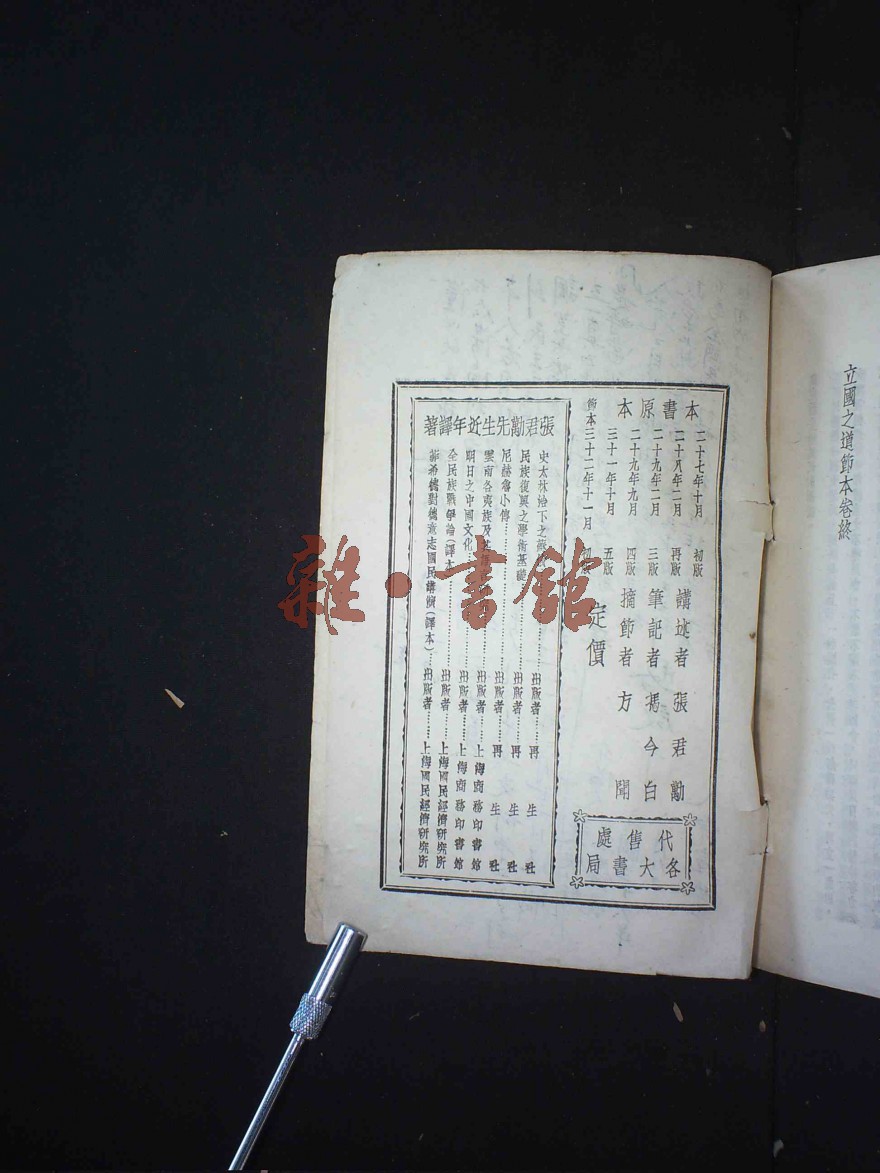 立國之道節本卷終
本書原本
二十七年十月 初版
二十八年二月 再版
二十九年二月 三版
二十九年九月 四版
三十一年十月 五版
節本三十二年十一月 初版
講述者 張君勱
筆記者 馮今白
摘節者 方聞
定價
代售處
各大書局
張君勱先生近年譯著
史太林治下之蘇俄 出版者 再生社
民族復興之學術基礎 出版者 再生社
尼赫魯小傳 出版者 再生社
雲南各夷族及其 出版者 上海商務印書館
明日之中國文化 出版者 上海商務印書館
全民族戰爭論(譯本) 出版者 上海國民經濟研究所
菲希德對德意志國民講演(譯本) 出版者 上海國民經濟研究所
雜·書館